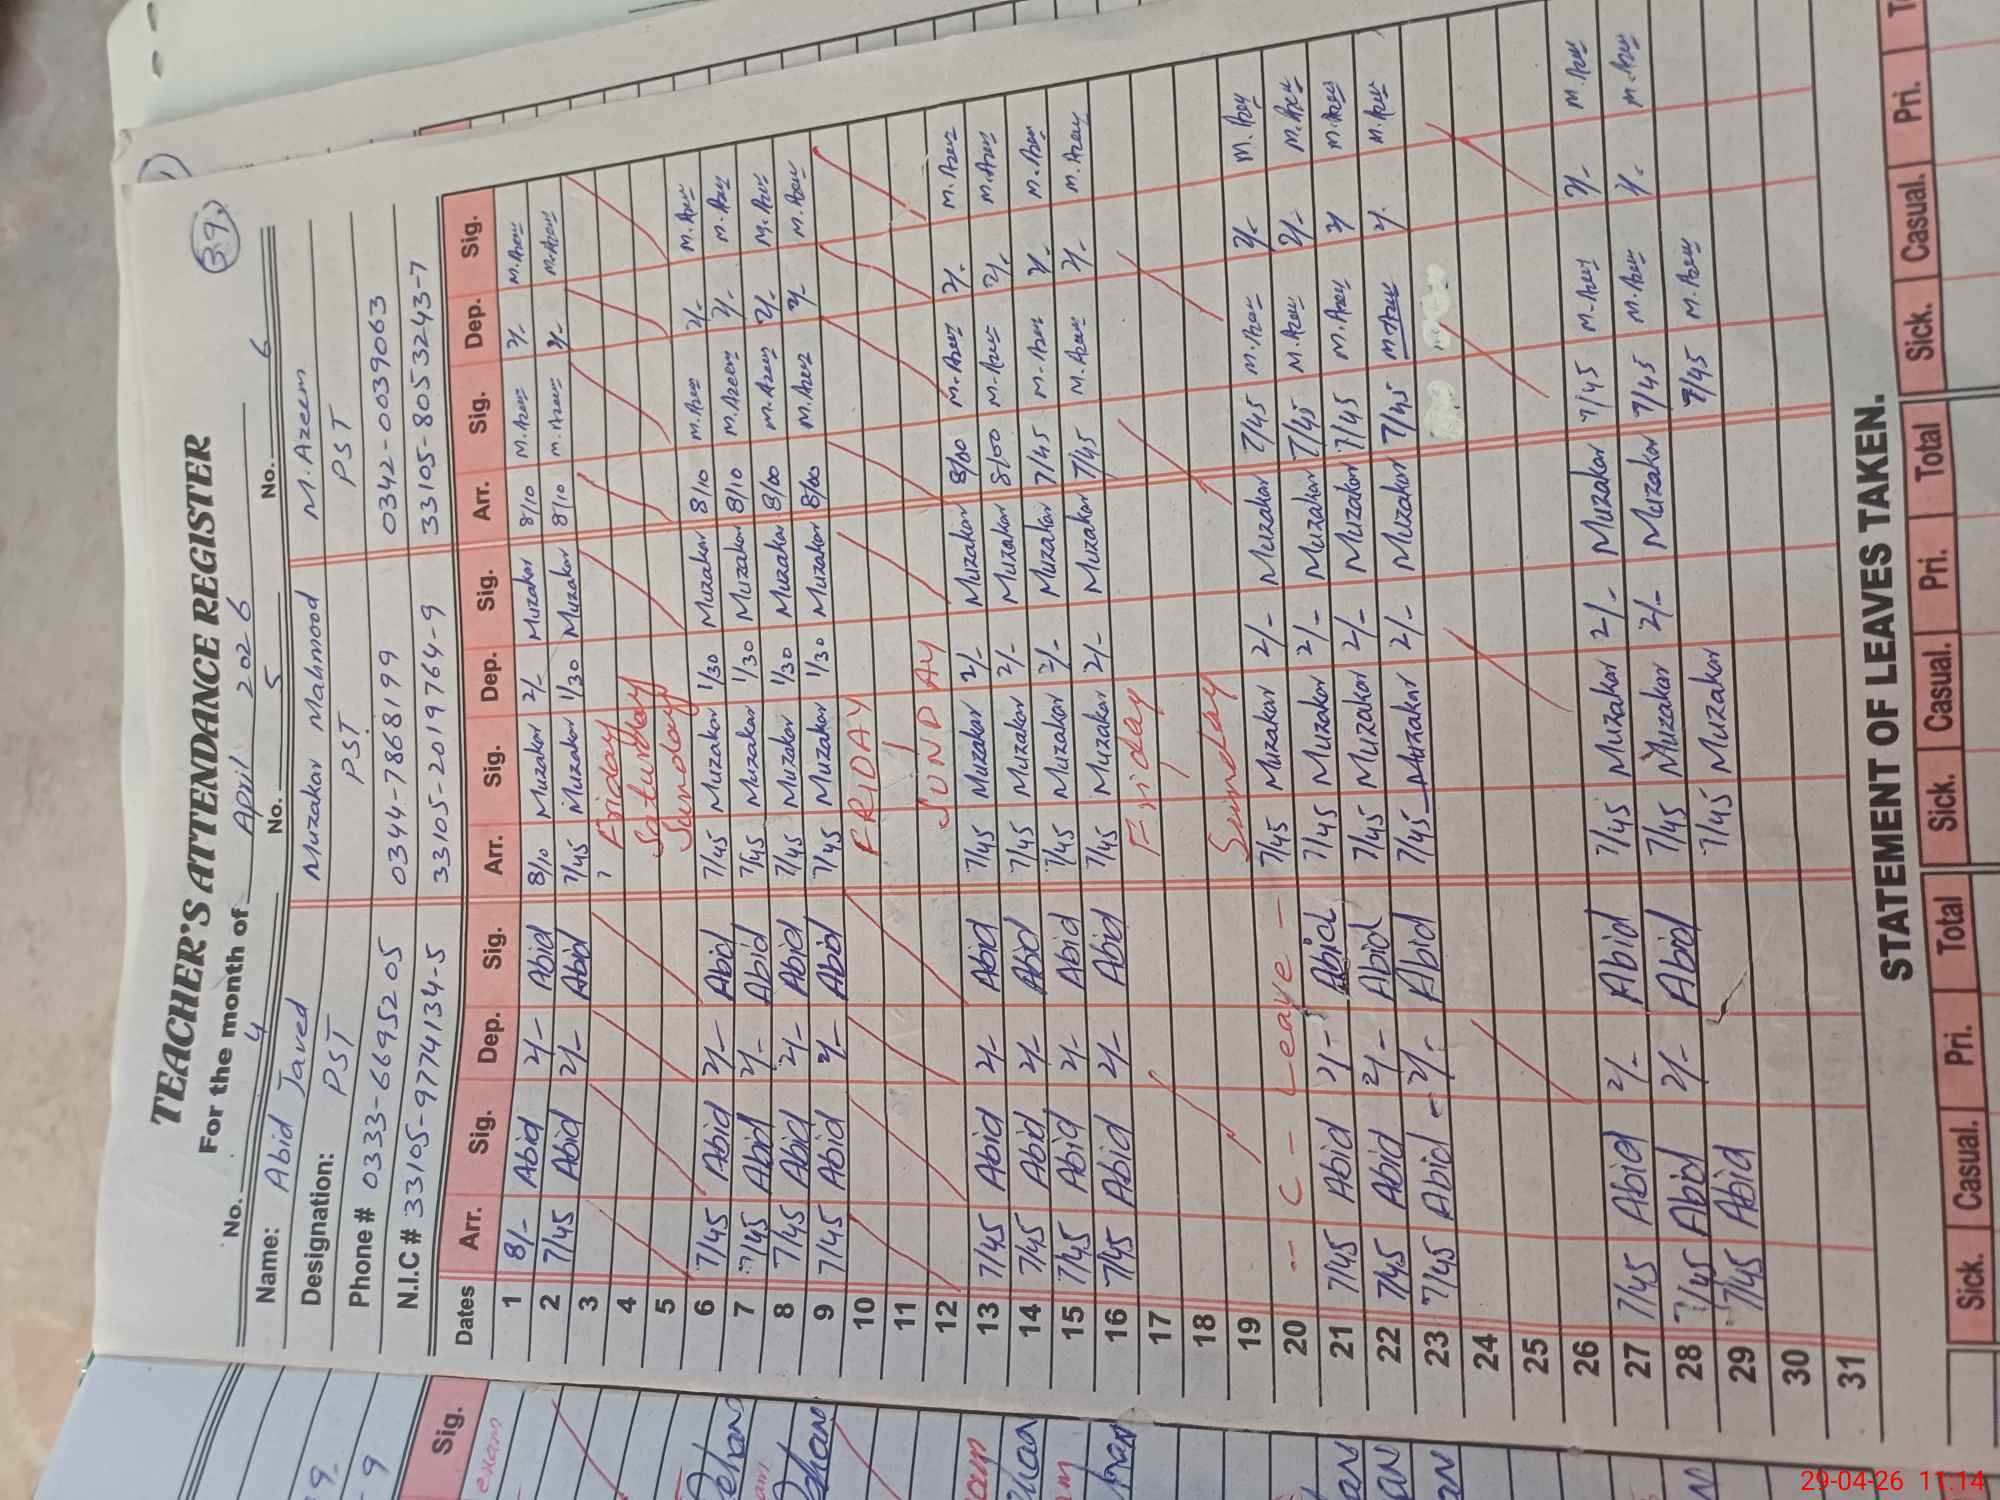 39
TEACHER'S ATTENDANCE REGISTER
For the month of April 2026
No. 4 No. 5 No. 6
Name: Abid Javed Muzakar Mahmood M. Azeem
Designation: PST PST PST
Phone # 0333-6695205 0344-7868199 0342-0039063
N.I.C # 33105-9774134-5 33105-2019764-9 33105-8053243-7
Dates Arr. Sig. Dep. Sig. Arr. Sig. Dep. Sig. Arr. Sig. Dep. Sig.
1 8/- Abid 2/- Abid 8/10 Muzakar 2/- Muzakar 8/10 M. Azeem 2/- M. Azeem
2 7/45 Abid 2/- Abid 7/45 Muzakar 1/30 Muzakar 8/10 M. Azeem 2/- M. Azeem
3 Friday
4 Saturday
5 Sunday
6 7/45 Abid 2/- Abid 7/45 Muzakar 1/30 Muzakar 8/10 M. Azeem 2/- M. Azeem
7 7/45 Abid 2/- Abid 7/45 Muzakar 1/30 Muzakar 8/10 M. Azeem 2/- M. Azeem
8 7/45 Abid 2/- Abid 7/45 Muzakar 1/30 Muzakar 8/00 M. Azeem 2/- M. Azeem
9 7/45 Abid 2/- Abid 7/45 Muzakar 1/30 Muzakar 8/00 M. Azeem 2/- M. Azeem
10 FRIDAY
11
12 SUNDAY
13 7/45 Abid 2/- Abid 7/45 Muzakar 2/- Muzakar 8/00 M. Azeem 2/- M. Azeem
14 7/45 Abid 2/- Abid 7/45 Muzakar 2/- Muzakar 8/00 M. Azeem 2/- M. Azeem
15 7/45 Abid 2/- Abid 7/45 Muzakar 2/- Muzakar 7/45 M. Azeem 2/- M. Azeem
16 7/45 Abid 2/- Abid 7/45 Muzakar 2/- Muzakar 7/45 M. Azeem 2/- M. Azeem
17 Friday
18
19 Sunday
20 -- C - Leave - 7/45 Muzakar 2/- Muzakar 7/45 M. Azeem 2/- M. Azeem
21 7/45 Abid 2/- Abid 7/45 Muzakar 2/- Muzakar 7/45 M. Azeem 2/- M. Azeem
22 7/45 Abid 2/- Abid 7/45 Muzakar 2/- Muzakar 7/45 M. Azeem 2/ M. Azeem
23 7/45 Abid 2/- Abid 7/45 Muzakar 2/- Muzakar 7/45 M. Azeem 2/. M. Azeem
24
25
26
27 7/45 Abid 2/- Abid 7/45 Muzakar 2/- Muzakar 7/45 M. Azeem 2/- M. Azeem
28 7/45 Abid 2/- Abid 7/45 Muzakar 2/- Muzakar 7/45 M. Azeem 2/- M. Azeem
29 7/45 Abid 7/45 Muzakar 7/45 M. Azeem
30
31
STATEMENT OF LEAVES TAKEN.
Sick. Casual. Pri. Total Sick. Casual. Pri. Total Sick. Casual. Pri.
Sig.
exam
29-04-26 11:14